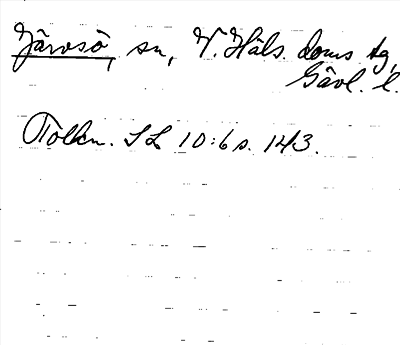 Järvsö, sn, V. Häls. doms. dg,
Gävl. l.
Tolkn. SL 10:6 s. 143.